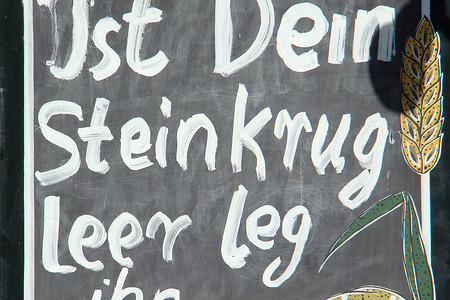 Ist Dein
Steinkrug
leer leg
ihn